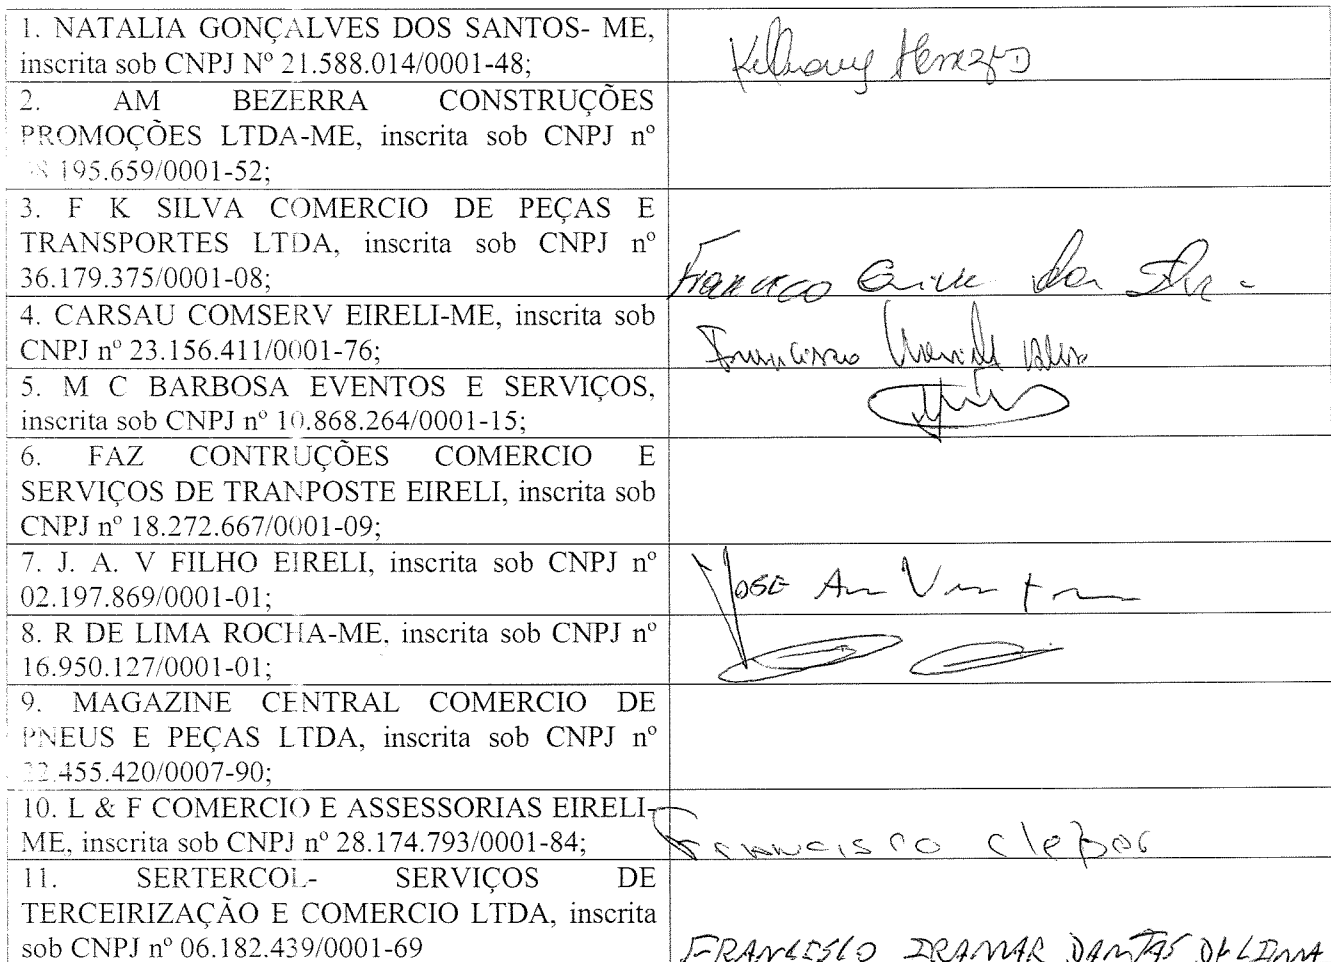 1. NATALIA GONÇALVES DOS SANTOS- ME,
inscrita sob CNPJ Nº 21.588.014/0001-48;
2. AM BEZERRA CONSTRUÇÕES
PROMOÇÕES LTDA-ME, inscrita sob CNPJ nº
195.659/0001-52;
3. F K SILVA COMERCIO DE PEÇAS E
TRANSPORTES LTDA, inscrita sob CNPJ nº
36.179.375/0001-08;
Francisco da Silva
4. CARSAU COMSERV EIRELI-ME, inscrita sob
CNPJ nº 23.156.411/0001-76;
Francisco
5. M C BARBOSA EVENTOS E SERVIÇOS,
inscrita sob CNPJ nº 10.868.264/0001-15;
6. FAZ CONTRUÇÕES COMERCIO E
SERVIÇOS DE TRANPOSTE EIRELI, inscrita sob
CNPJ nº 18.272.667/0001-09;
7. J. A. V FILHO EIRELI, inscrita sob CNPJ nº
02.197.869/0001-01;
JOSE
8. R DE LIMA ROCHA-ME, inscrita sob CNPJ nº
16.950.127/0001-01;
9. MAGAZINE CENTRAL COMERCIO DE
PNEUS E PEÇAS LTDA, inscrita sob CNPJ nº
22.455.420/0007-90;
10. L & F COMERCIO E ASSESSORIAS EIRELI-
ME, inscrita sob CNPJ nº 28.174.793/0001-84;
Francisco
11. SERTERCOL- SERVIÇOS DE
TERCEIRIZAÇÃO E COMERCIO LTDA, inscrita
sob CNPJ nº 06.182.439/0001-69
FRANCISCO IRAMAR DANTAS DE LIMA